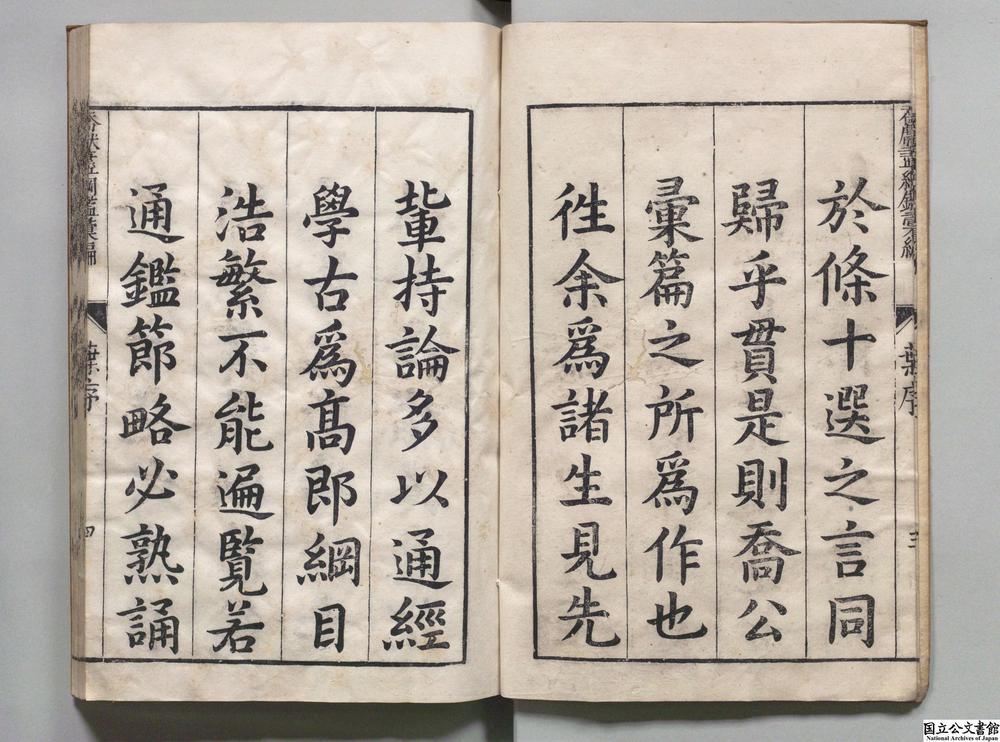 於條十選之言同
歸乎貫是則喬公
彙篇之所爲作也
徃余爲諸生見先
葉序
三
輩持論多以通經
學古爲髙即綱目
浩繁不能遍覽若
通鑑節略必熟誦
葉序
四
国立公文書館
National Archives of Japan